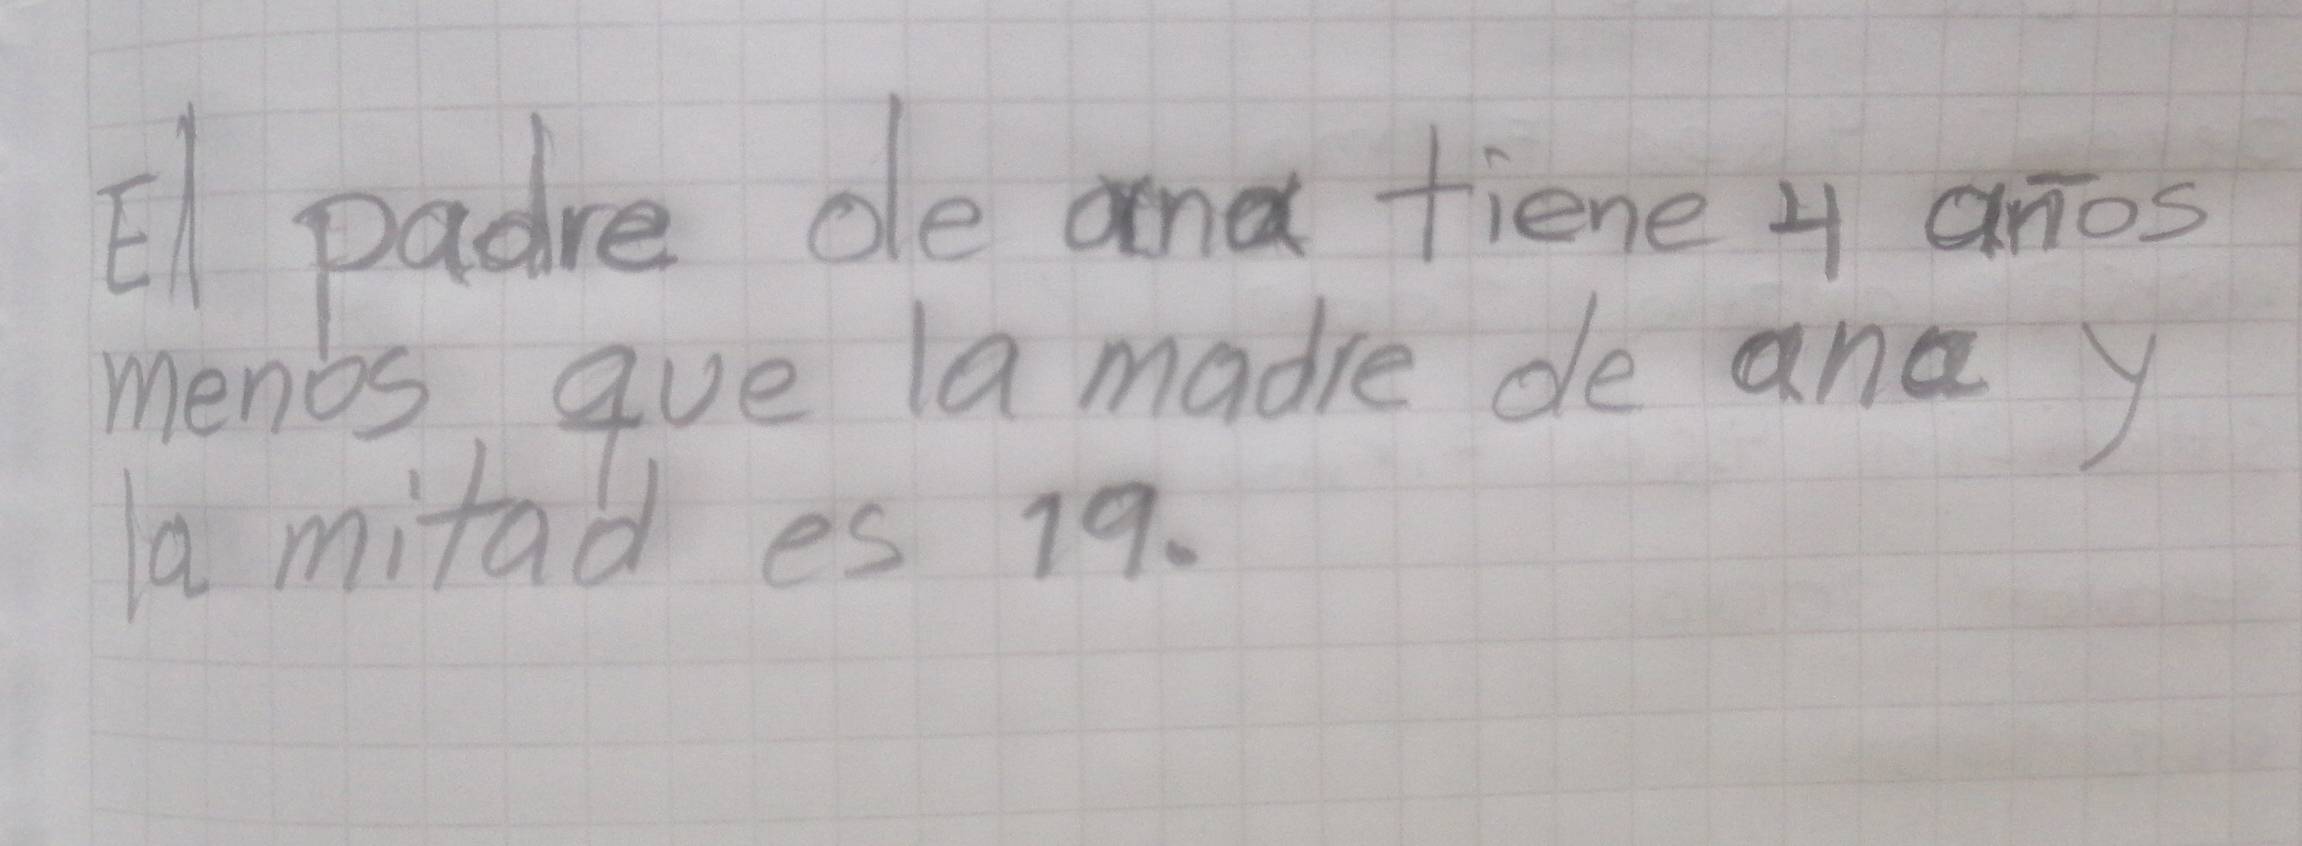 El padre de ana tiene 4 años
menos que la madre de ana y
la mitad es 19.